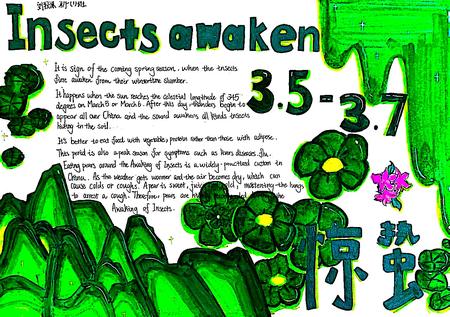 Insects awaken
3.5-3.7
It is sign of the coming spring season. when the insects
awaken from their wintertime slumber.
It happens when the sun reaches the celestial longitude of 345
degrees on March 5 or March 6. After this day thunders begin to
appear all over China and the sound awakens all kinds insects
hiding in the soil.
It's better to eat food with vegetable, protein rather than those with adipose.
This period is also a peak season for symptoms such as livers diseases, flu.
Eating pears around the Awaking of Insects is a widely-practiced custom in
China. As the weather gets warmer and the air becomes dry, which can
cause colds or coughs. A pear is sweet, cold, moistening the lungs
to arrest a cough. Therefore pears are the
Awaking of Insects.
惊蛰